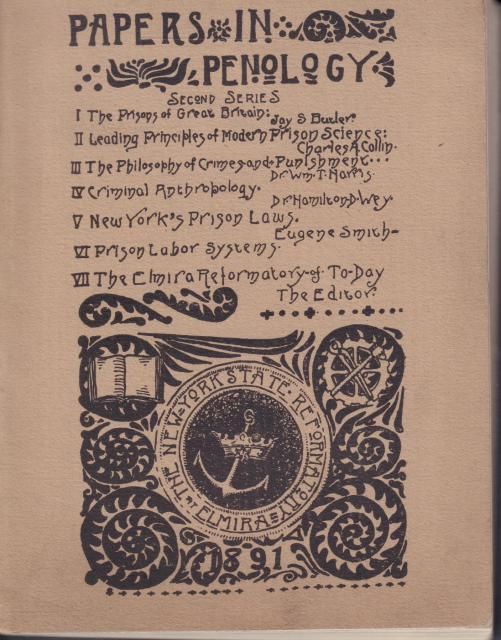 PAPERS IN
PENOLOGY
SECOND SERIES
I The Prisons of Great Britain:
Jay S Butler.
II Leading Principles of Modern Prison Science:
Charles A Collin.
III The Philosophy of Crime and Punishment...
Dr Wm. T. Harris.
IV Criminal Anthropology.
Dr. Hamilton D. Wey.
V New York's Prison Laws.
Eugene Smith-
VI Prison Labor Systems.
VII The Elmira Reformatory of To-Day
The Editor.
THE NEW YORK STATE REFORMATORY
AT ELMIRA
1891